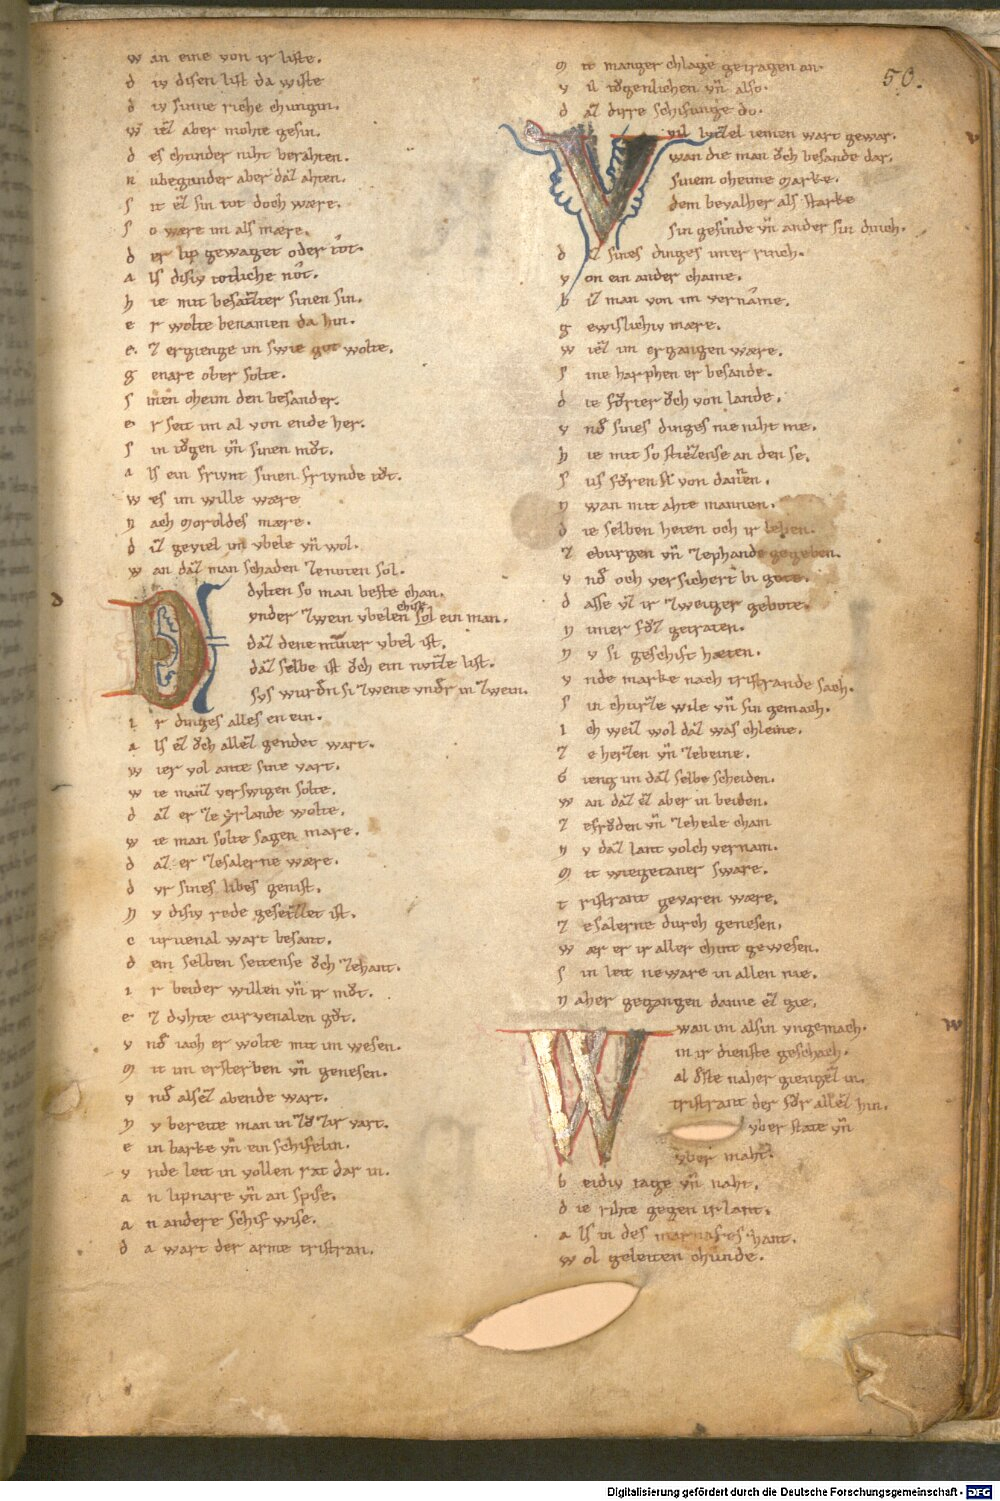 w an eine von ir liste.
d iv disen list da wiste
d iv sinne riche chungin.
w iez aber mohte gesin.
d es chunder niht berahten.
n ubegunder aber daz ahten.
s it ez sin tot doch wære.
s o wære im als mære.
d er lip gewaget oder tot.
a ls disiv totliche not.
h ie mit besazter sinen sin.
e r wolte benamen da hin.
e z ergienge im swie got wolte.
g enare ober solte.
s inen oheim den besander.
e r seit im al von ende her.
s in tǒgen vn̄ sinen mǒt.
a ls ein frivnt sinen frivnde tǒt.
w es im wille wære
n ach moroldes mære.
d iz geviel im vbele vn̄ wol.
w an daz man schaden zenoten sol.
D dvlten so man beste chan.
vnder zwein vbelen chiese sol ein man.
daz dene minner vbel ist.
daz selbe ist ǒch ein nvzze list.
svs wurdn̄ si zwene vndr in zwein.
i r dinges alles en ein.
a ls ez ǒch allez gendet wart.
w ier vol ante sine vart.
w ie manz verswigen solte.
d az er ze yrlande wolte.
w ie man solte sagen mære.
d az er zesalerne wære.
d vr sines libes genist.
n v disiv rede geseizzet ist.
c urvenal wart besant.
d em selben seitense ǒch zehant.
i r beider willen vn̄ ir mǒt.
e z dvhte curvenalen gǒt.
v nd̄ iach er wolte mit im wesen.
m it im ersterben vn̄ genesen.
v nd̄ alsez abende wart.
n v bereite man in zǒ zir vart.
e in barke vn̄ ein schifelin.
v nde leit in vollen rat dar in.
a n lipnare vn̄ an spise.
a n andere schif wise.
d a wart der arme tristran.
50.
m it manger chlage getragen an.
v il tǒgenlichen vn̄ also.
d az dirre schifunge do.
V vil lvzzel iemen wart gewar.
wan die man ǒch besande dar.
sinem oheime marke.
dem bevalher als starke
sin gesinde vn̄ ander sin dinch.
d az sines dinges imer rinch.
v on ein ander chame.
b iz man von im vername.
g ewislichiv mære.
w iez im ergangen wære.
s ine harphen er besande.
d ie fǒrter ǒch von lande.
v nd̄ sines dinges nie niht me.
h ie mit so stiezense an den se.
s us fǒren si von dannen.
n wan mit ahte mannen.
d ie selben heten och ir leben.
z eburgen vn̄ zephande gegeben.
v nd̄ och versichert bi gote.
d asse vz ir zweiger gebote.
n imer fǒz getraten.
n v si geschift hæten.
v nde marke nach tristrande sach.
s in churze wile vn̄ sin gemach.
i ch weiz wol daz was chleine.
z e herzen vn̄ zebeine.
G ieng im daz selbe scheiden.
w an daz ez aber in beiden.
z efrǒden vn̄ zeheile cham
n v daz lant volch vernam.
m it wiegetaner sware.
t ristrant gevaren wære.
z esalerne durch genesen.
w ær er ir aller chint gewesen.
s in leit neware in allen nie.
n aher gegangen danne ez gie.
W wan im alsin vngemach.
in ir dienste geschach.
al ǒste naher giengez in.
tristrant der fǒr allez hin.
vber state vn̄
vber maht.
b eidiv tage vn̄ naht.
d ie rihte gegen irlant.
a ls in des marnæres hant.
w ol geleiten chunde.
Digitalisierung gefördert durch die Deutsche Forschungsgemeinschaft - DFG